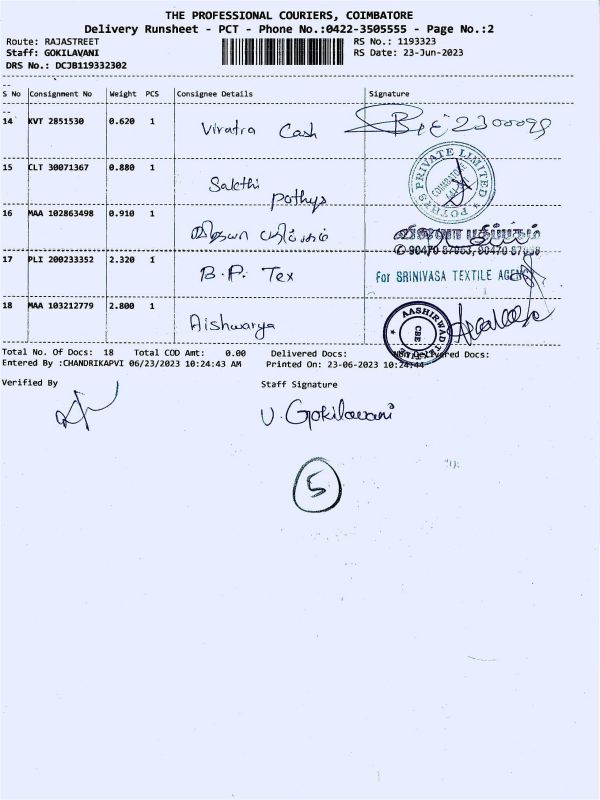 THE PROFESSIONAL COURIERS, COIMBATORE
Delivery Runsheet - PCT - Phone No.:0422-3505555 - Page No.:2
Route: RAJASTREET RS No.: 1193323
Staff: GOKILAVANI RS Date: 23-Jun-2023
DRS No.: DCJB119332302
S No Consignment No Weight PCS Consignee Details Signature
14 KVT 2851530 0.620 1 Viratra Cash
15 CLT 30071367 0.880 1 Sakthi Pothys
POTHYS PRIVATE LIMITED COIMBATORE
16 MAA 102863498 0.910 1
17 PLI 200233352 2.320 1 B.P. Tex
For SRINIVASA TEXTILE AGENCY
18 MAA 103212779 2.800 1 Aishwarya
AASHIRWAD CBE
Total No. Of Docs: 18 Total COD Amt: 0.00 Delivered Docs: Docs:
Entered By :CHANDRIKAPVI 06/23/2023 10:24:43 AM Printed On: 23-06-2023 10:24:44
Verified By Staff Signature
V. Gokilavani
5